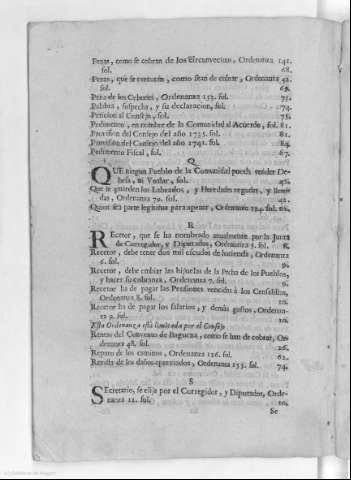 Penas, como se cobran de los Circunvecinos, Ordenanza 141.
fol. 68.
Penas, que se executan, como se an de cobrar, Ordenanza 52.
fol. 69.
Pena de los Cebones, Ordenanza 152. fol. 75.
Palabra, sospecha, y su declaracion, fol. 74.
Peticion al Consejo, fol. 78.
Pedimento, en nombre de la Comunidad al Acuerdo, fol. 81.
Provision del Consejo del año 1735. fol. 81.
Provision del Consejo del año 1741. fol. 84.
Pedimento Fiscal, fol. 87.
Q
QUE ningun Pueblo de la Comunidad pueda vender De-
hesa, ni Vedlar, fol.
Que se guarden los Labrados, y Heredades regadas, y
das, Ordenanza 70. fol.
Quien sea parte legitima para apenar, Ordenanza 134. fol.
R
REctor, que se ha nombrado anualmente por la Junta
de Corregidor, y Diputados, Ordenanza 5. fol. 8.
Rector, debe tener dos mil escudos de hacienda, Ordenanza
6. fol. 9.
Rector, debe embiar las hijuelas de la Pecha de los Pueblos,
y hacer su cobranza, Ordenanza 7. fol. 9.
Rector ha de pagar las Pensiones vencidas à los Censalistas,
Ordenanza 8. fol. 10.
Rector ha de pagar los salarios, y demás gastos, Ordenan-
za 9. fol. 10.
Esta Ordenanza está limitada por el Consejo
Rentas del Convenio de Baguena, como se han de cobrar, Or-
denanza 48. fol. 26.
Reparo de los caminos, Ordenanza 126. fol. 62.
Revista de los daños apreciados, Ordenanza 155. fol. 74.
S
SEcretario, se elija por el Corregidor, y Diputados, Orde-
nanza 12. fol. 10.
Se